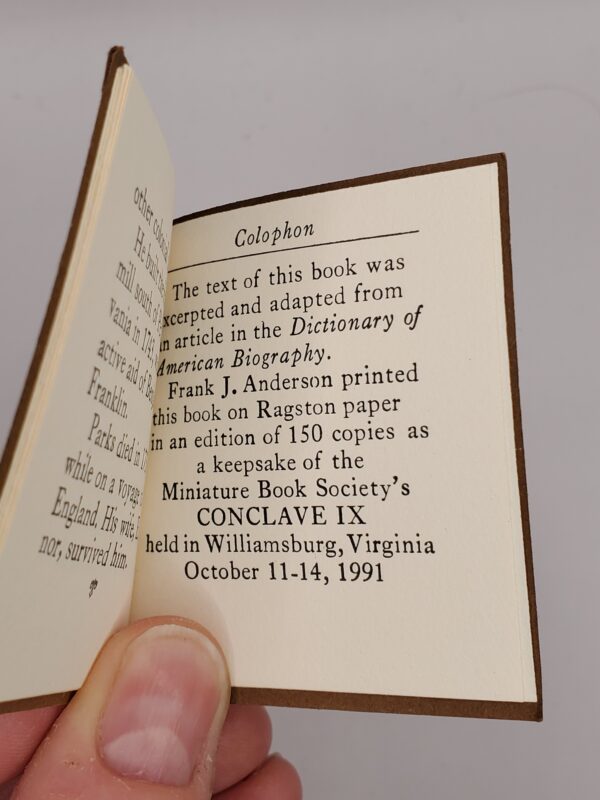 other
He
mill south of
vania in 174
active aid of Be
Franklin.
Parks died in 17
while on a voyage
England. His wife,
nor, survived him.
Colophon
The text of this book was
xcerpted and adapted from
n article in the Dictionary of
American Biography.
Frank J. Anderson printed
this book on Ragston paper
in an edition of 150 copies as
a keepsake of the
Miniature Book Society's
CONCLAVE IX
held in Williamsburg, Virginia
October 11-14, 1991